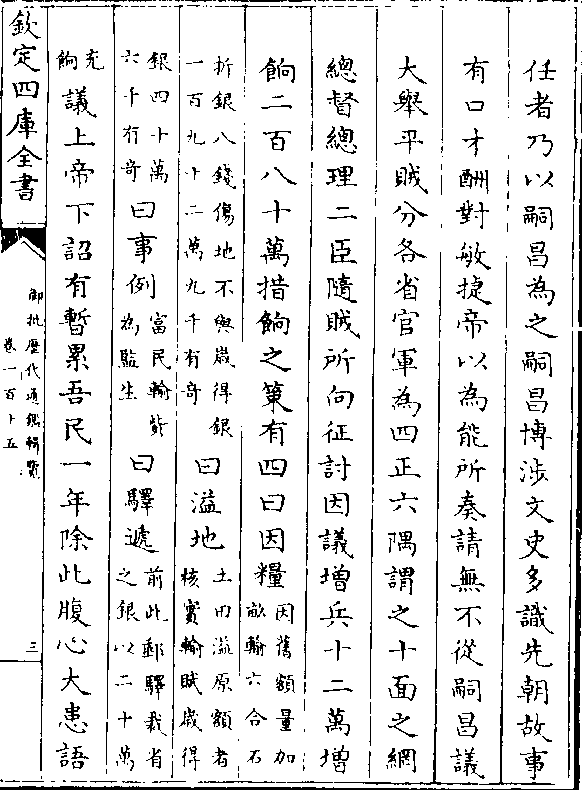 任者乃以嗣昌為之嗣昌博涉文史多識先朝故事
有口才酬對敏捷帝以為能所奏請無不從嗣昌議
大舉平賊分各省官軍為四正六隅謂之十面之網
總督總理二臣隨賊所向征討因議增兵十二萬增
餉二百八十萬措餉之策有四曰因糧因舊額量加畝輸六合石
折銀八錢傷地不與歲得銀一百九十二萬九千有奇曰溢地土田溢原額者核實輸賦歲得
銀四十萬六千有奇曰事例富民輸貲為監生曰驛遞前此郵驛裁省之銀以二十萬
充餉議上帝下詔有暫累吾民一年除此腹心大患語
欽定四庫全書
御批歷代通鑑輯覽
卷一百十五
三